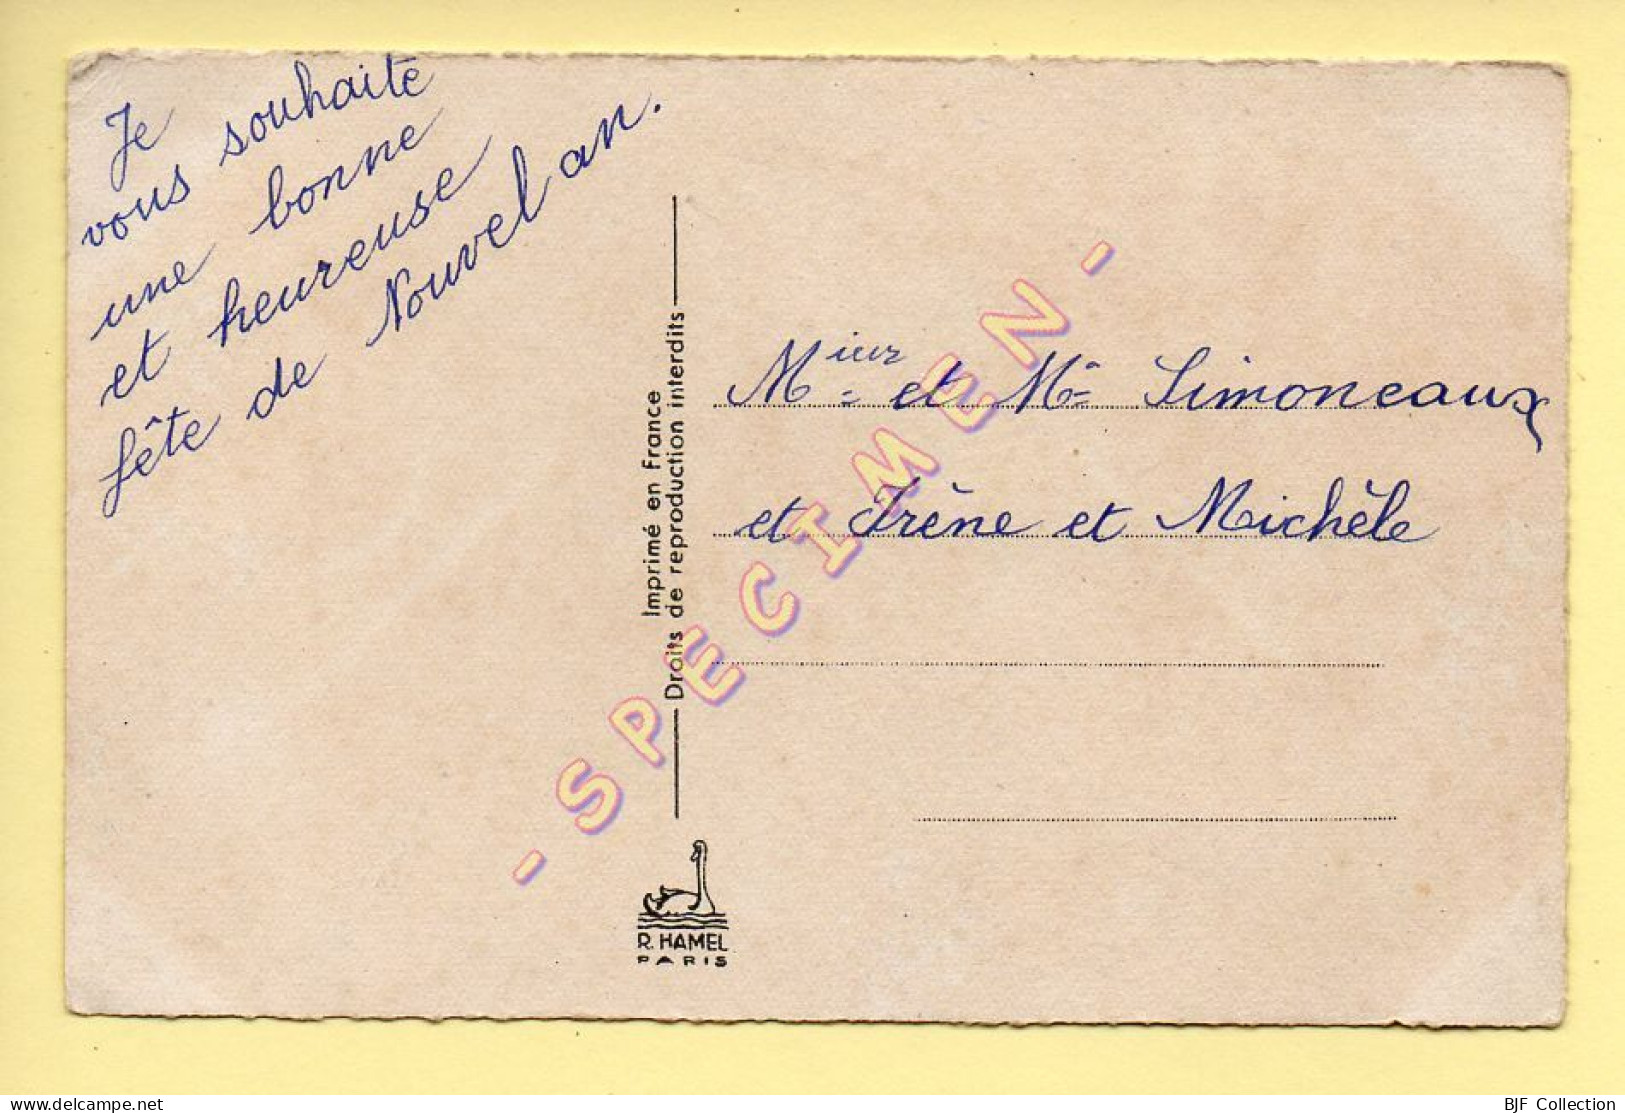 Je
vous souhaite
une bonne
et heureuse
fête de Nouvel an.
Imprimé en France
Droits de reproduction interdits
Mieur et Me Simoneaux
et Irène et Michèle
- SPECIMEN -
R. HAMEL
PARIS
www.delcampe.net
BJF Collection